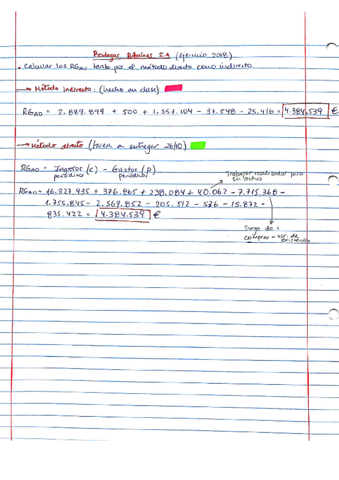 Bodegas Bilbaínas S.A (ejercicio 2018)
• Calcular los RGAO tanto por el método directo como indirecto.
→ Método indirecto: (hecho en clase)
RGAO = 2.889.899 + 500 + 1.557.104 - 37.548 - 25.416 = 4.384.539 €
→ Método directo (tarea a entregar 26/10)
RGAO = Ingresos (c) - Gastos (p)
periódicos periódicos
Trabajos realizados para
su activo
RGAO = 16.827.935 + 376.865 + 238.084 + 40.062 - 7.715.368 -
1.755.845 - 2.569.852 - 205.512 - 536 - 15.872 -
835.422 = 4.384.539 €
Surge de:
compras - var. de
existencias